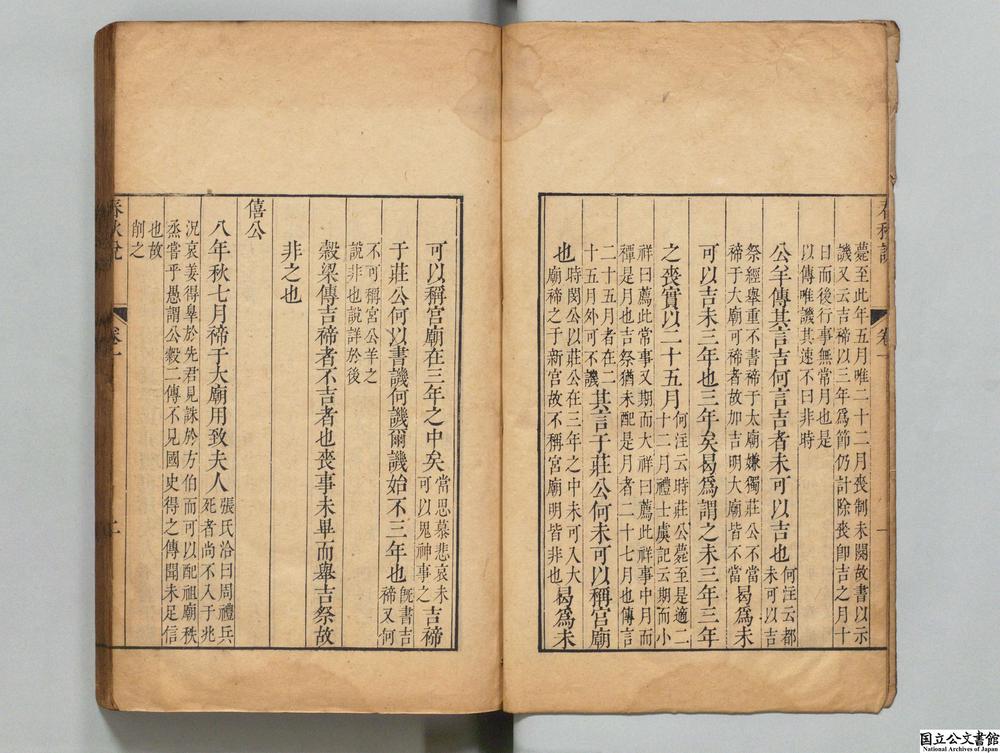 春秋說 卷一 一
薨至此年五月唯二十二月喪制未闋故書以示
譏又云吉禘以三年爲節仍計除喪即吉之月十
日而後行事無常月也是
以傳唯譏其速不曰非時
公羊傳其言吉何言吉者未可以吉也何注云都
未可以吉
祭經舉重不書禘于太廟嫌獨莊公不當
禘于大廟可禘者故加吉明大廟皆不當曷爲未
可以吉未三年也三年矣曷爲謂之未三年三年
之喪實以二十五月何注云時莊公薨至是適二
十二月禮士虞記云期而小
祥曰薦此常事又期而大祥曰薦此祥事中月而
禫是月也吉祭猶未配是月者二十七月也傳言
二十五月者在二
十五月外可不譏其言于莊公何未可以稱宮廟
也時閔公以莊公在三年之中未可入大
廟禘之于新宮故不稱宮廟明皆非也曷爲未
可以稱宮廟在三年之中矣當思慕悲哀未
可以鬼神事之吉禘
于莊公何以書譏何譏爾譏始不三年也既書吉
禘又何
不可稱宮公羊之
說非也說詳於後
穀梁傳吉禘者不吉者也喪事未畢而舉吉祭故
非之也
僖公
八年秋七月禘于大廟用致夫人張氏洽曰周禮兵
死者尚不入于兆
況哀姜得辠於先君見誅於方伯而可以配祖廟秩
烝嘗乎愚謂公穀二傳不見國史得之傳聞未足信
也故
削之
春秋說 卷一 二
国立公文書館
National Archives of Japan